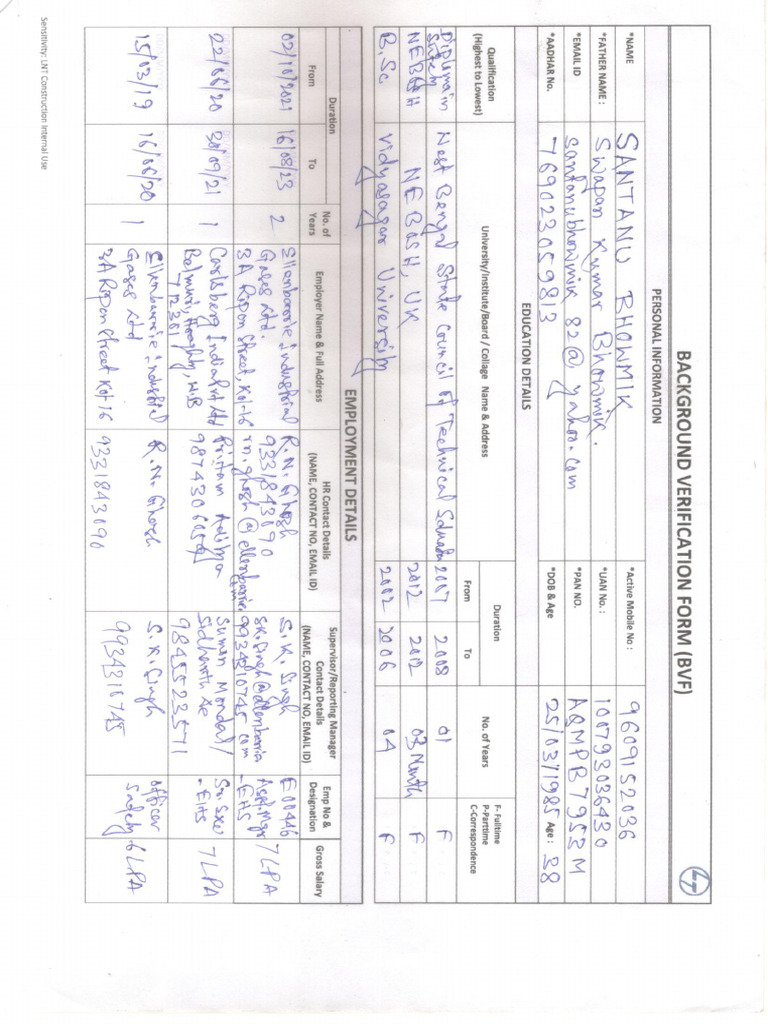 BACKGROUND VERIFICATION FORM (BVF)
PERSONAL INFORMATION
*NAME SANTANU BHOWMIK *Active Mobile No : 9609152036
*FATHER NAME : Swapan Kumar Bhowmik. *UAN No. : 100793036430
*EMAIL ID santanubhowmik82@yahoo.com *PAN NO. AQMPB7953M
*AADHAR No. 769023059813 *DOB & Age 25/03/1985 Age : 38
EDUCATION DETAILS
Qualification (Highest to Lowest) University/Institute/Board / Collage Name & Address Duration No. of Years F- Fulltime P-Parttime C-Correspondence
From To
Diploma in West Bengal State Council of Technical 2007 2008 01 F
NEBOSH NEBOSH, UK 2012 2012 03 Month F
B.Sc Vidyasagar University 2002 2006 04 F
EMPLOYMENT DETAILS
Duration No. of Years Employer Name & Full Address HR Contact Details (NAME, CONTACT NO, EMAIL ID) Supervisor/Reporting Manager Contact Details (NAME, CONTACT NO, EMAIL ID) Emp No & Designation Gross Salary
From To
02/10/2021 16/08/23 2 Ellenbarrie industrial R.N. Ghosh S.K. Singh E00446
Gases Ltd. 9331843090 Asst. Mgr 7 LPA
3A Ripon Street, Kol-16 9934310745 - EHS
22/06/20 30/09/21 1 Carlsberg India Pvt Ltd Pritam Suman Mondal / Sr. Exe 7 LPA
Belmuri, Hooghly, W.B Sidharth - EHS
712301 9845523571
15/03/19 16/06/20 1 Ellenbarrie industrial R.N. Ghosh S.K. Singh officer
Gases Ltd 9331843090 9934310745 safety 6 LPA
3A Ripon Street Kol 16
Sensitivity: LNT Construction Internal Use